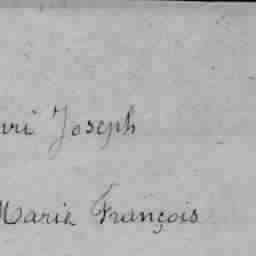 uri Joseph
Marie François